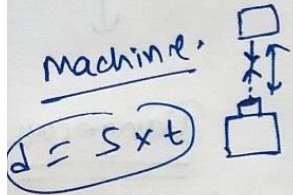 Machine.
d = s x t